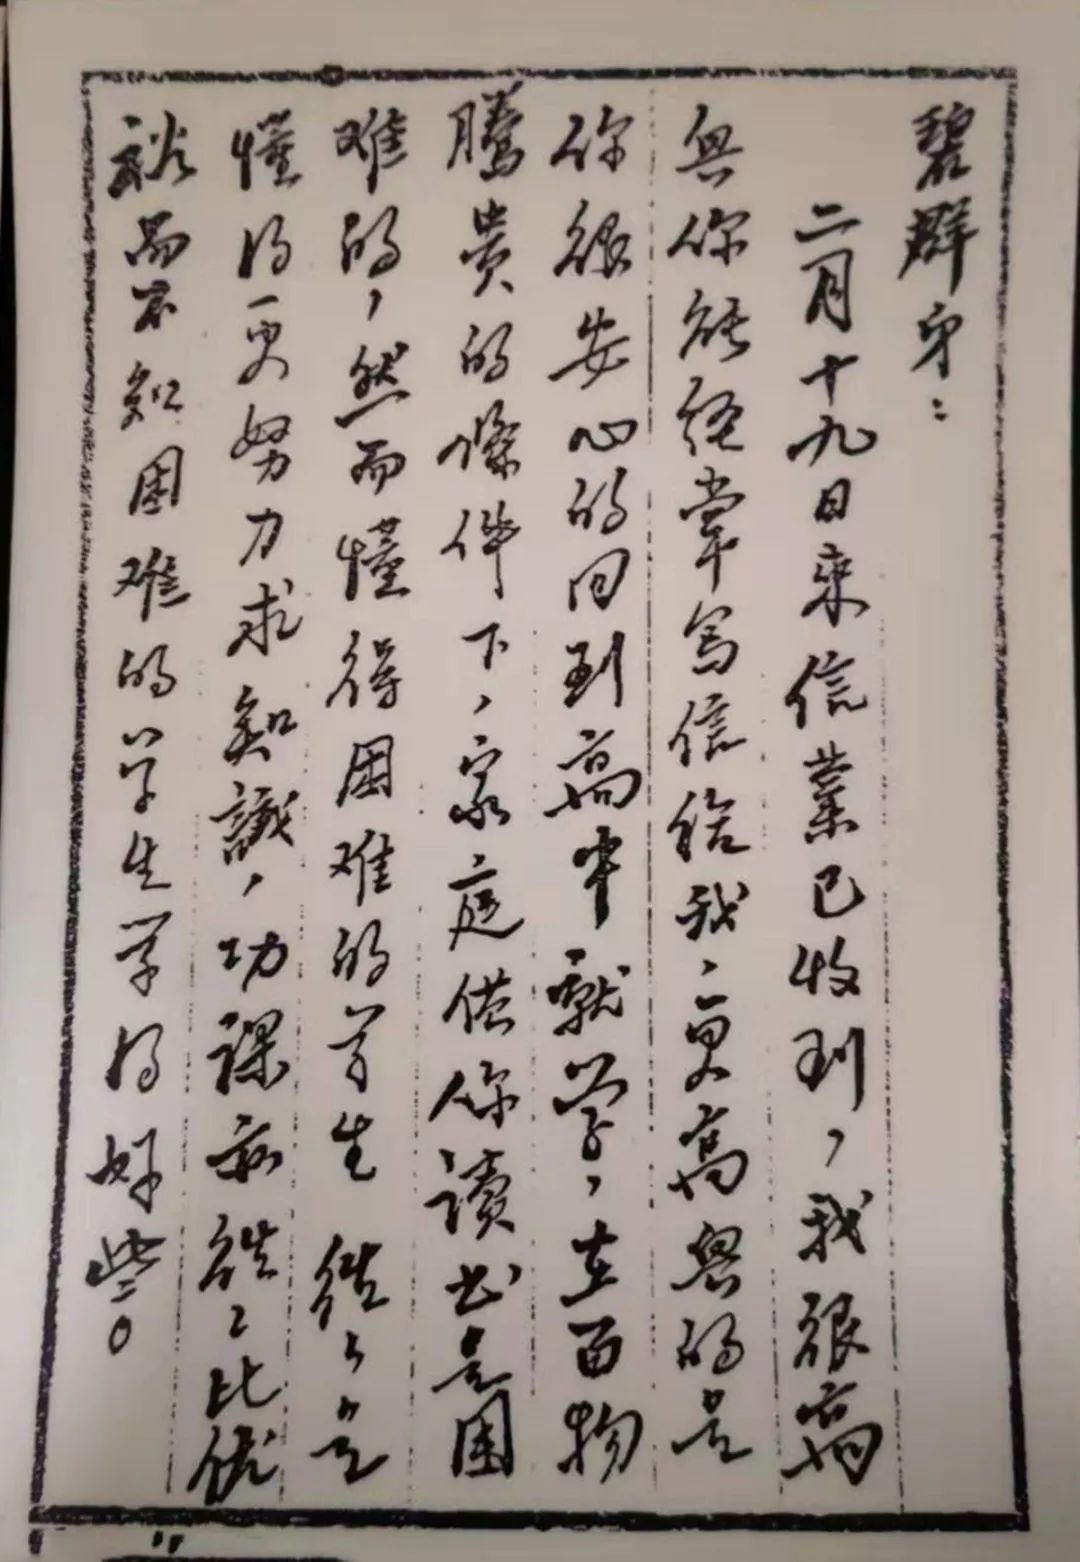 碧群：
二月十九日来信業已收到，我很高
興你能经常写信给我，更高興的是
你很安心的回到高中就学，在百物
騰貴的條件下，家庭供你讀书是困
难的，然而懂得困难的学生往往是
懂得更努力求知識，功課往往比优
裕而不知困难的学生学得好些。